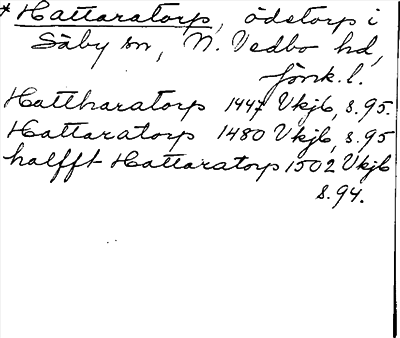 * Hattaratorp, ödetorp i
Säby sn, N. Vedbo hd,
Jönk. l.
Hattharatorp 1447 Vkjb, s. 95.
Hattaratorp 1480 Vkjb, s. 95
halfft Hattaratorp 1502 Vkjb
s. 94.